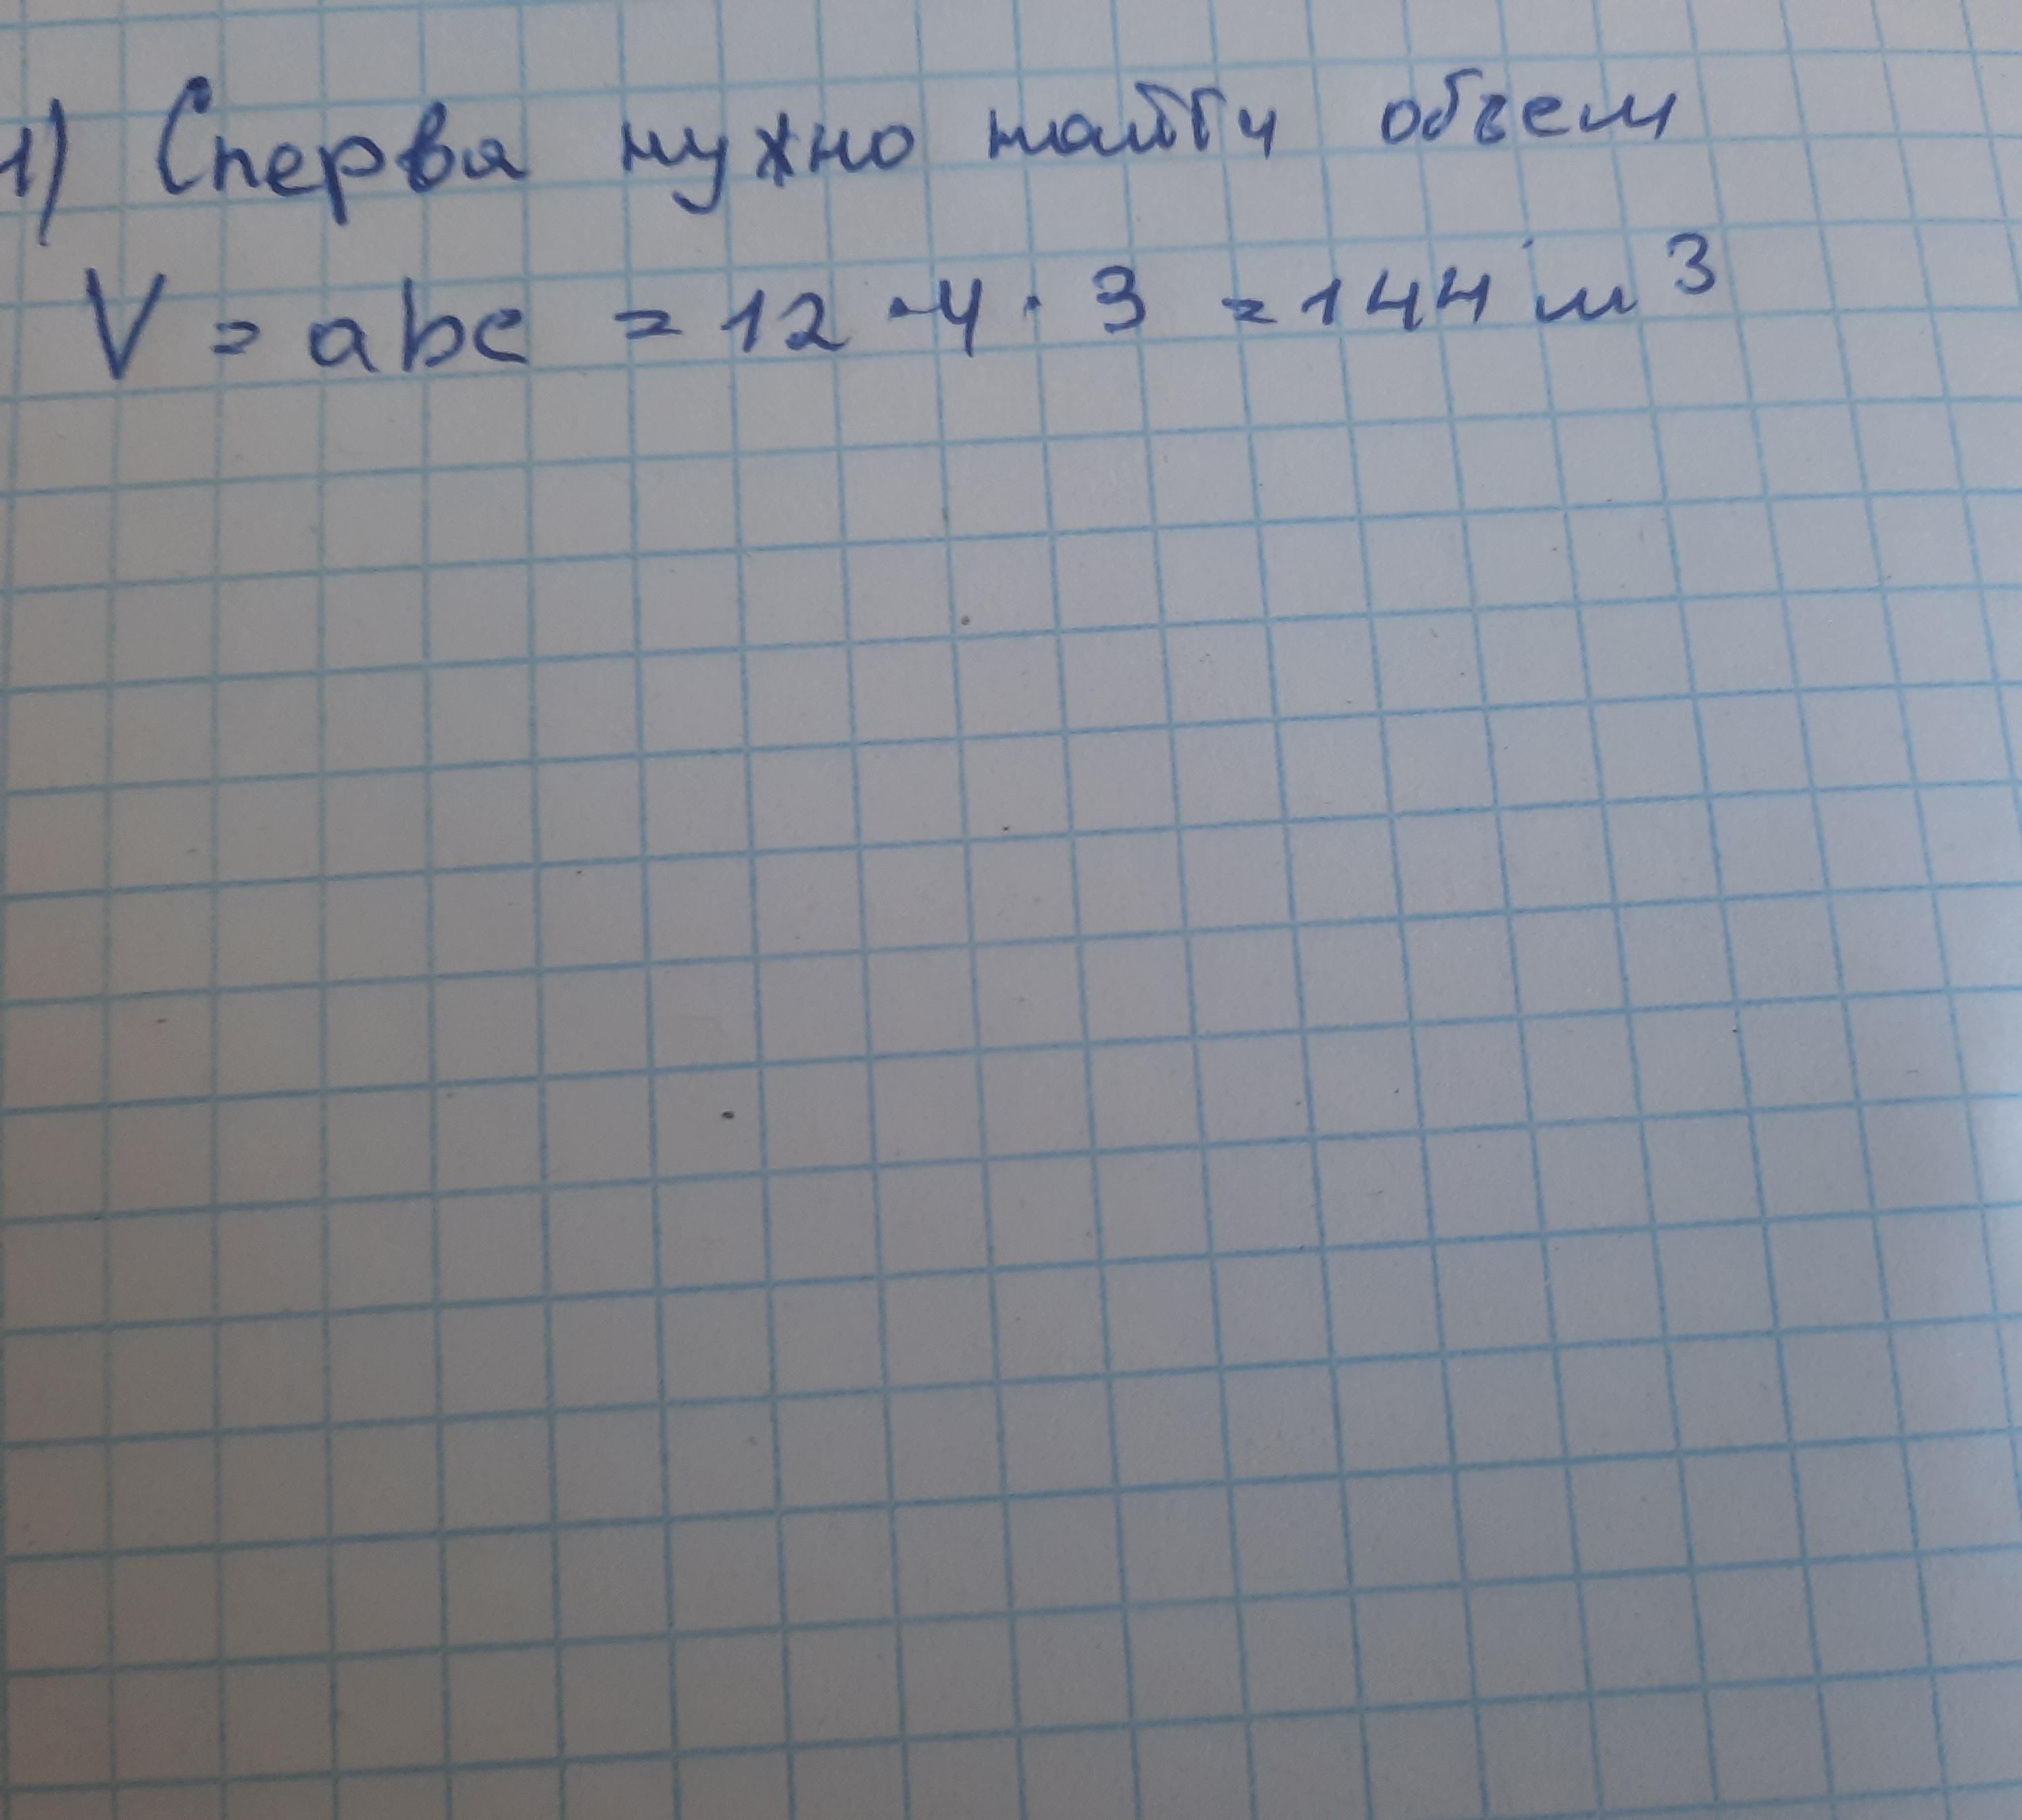 1) Сперва нужно найти обьем
V = abc = 12 · 4 · 3 = 144 м³